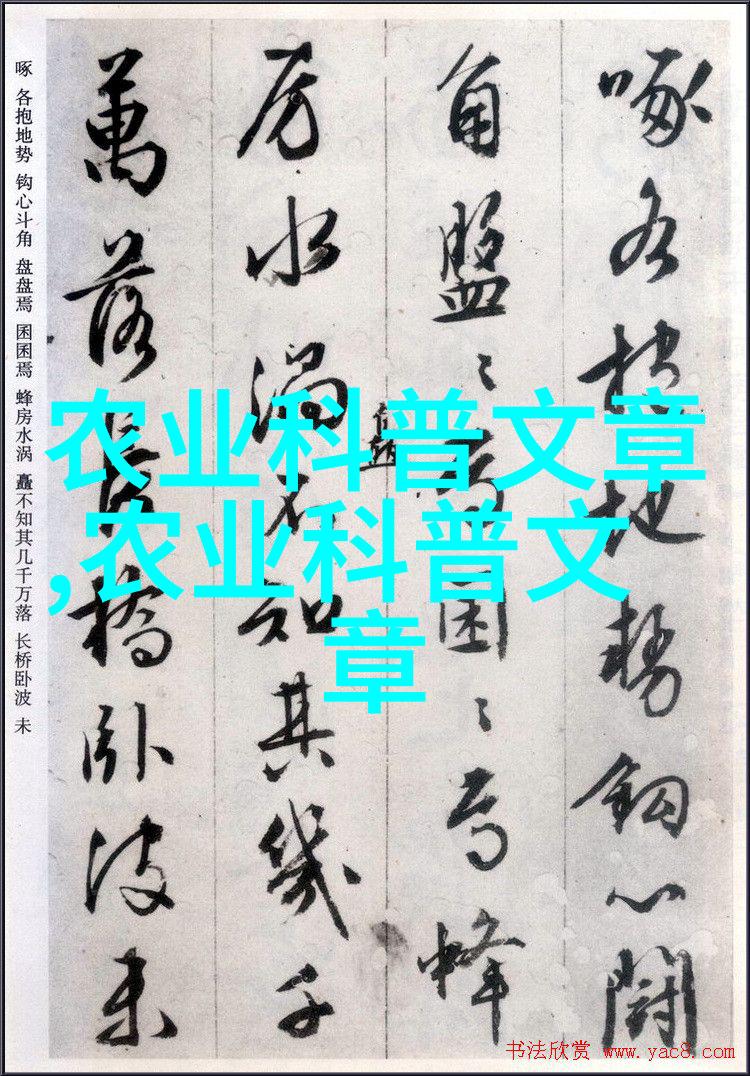 啄 各抱地势 钩心斗角 盘盘焉 囷囷焉 蜂房水涡 矗不知其几千万落 长桥卧波 未
啄各抱地势鈎心鬪
角盤〻焉囷〻焉蜂
房水渦矗不知其幾千
萬落長橋卧波未
农业科普文章
,农业科普文
章
书法欣赏 www.yac8.com